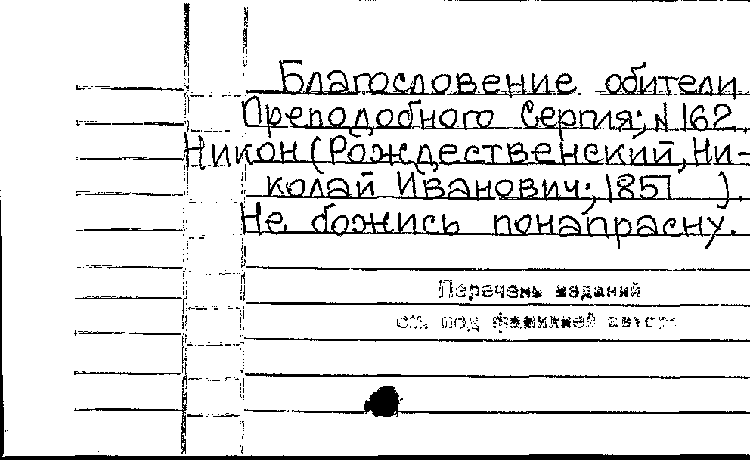 Благословение обители
Преподобного Сергия; N 162.
Никон (Рождественский, Ни-
колай Иванович; 1851 ).
Не божись понапрасну.
Перечень изданий
см. под фамилией автора